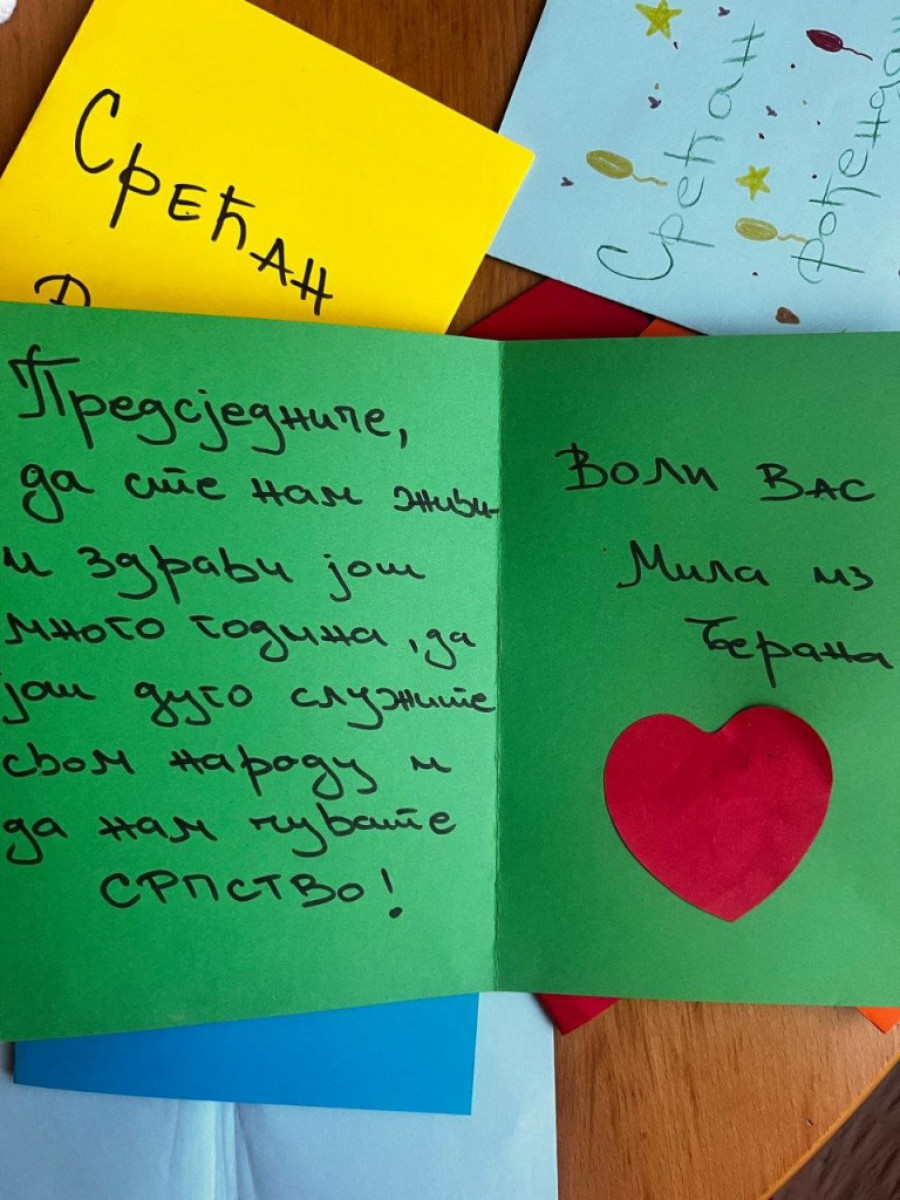 СРЕЋАН
Срећан
рођенда
Предсједниче,
да сте нам живи
и здрави још
много година, да
још дуго служите
свом народу и
да нам чувате
СРПСТВО!
ВОЛИ ВАС
Мила из
Берана